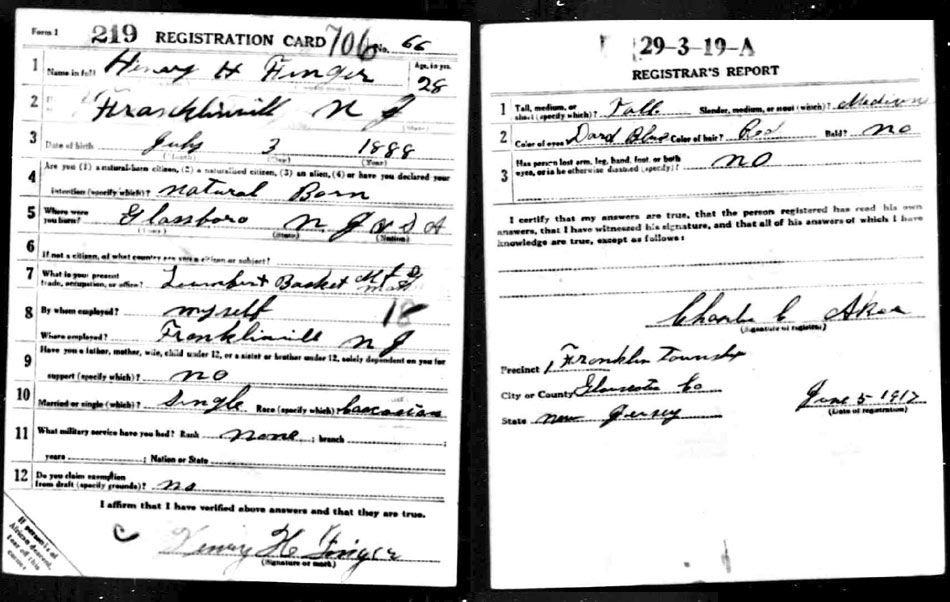 Form 1 219 REGISTRATION CARD 706 No. 66
1 Name in full Henry H Finger Age, in yrs. 28
2 Franklinvill N J
(State)
3 Date of birth July 3 1888
(Month) (Day) (Year)
Are you (1) a natural-born citizen, (2) a naturalized citizen, (3) an alien, (4) or have you declared your
4 intention (specify which)? natural Born
5 Where were you born? Glassboro N J U S A
(Town) (State) (Nation)
6 If not a citizen, of what country are you a citizen or subject?
7 What is your present trade, occupation, or office? Lumber & Basket Mfg
8 By whom employed? myself 18
Where employed? Franklinvill N J
9 Have you a father, mother, wife, child under 12, or a sister or brother under 12, solely dependent on you for
support (specify which)? no
10 Married or single (which)? Single Race (specify which)? Caucasian
11 What military service have you had? Rank none ; branch ;
years ; Nation or State
12 Do you claim exemption from draft (specify grounds)? no
I affirm that I have verified above answers and that they are true.
Henry H Finger
(Signature or mark)
If person is of
African descent,
tear off this
corner
29-3-19-A
REGISTRAR'S REPORT
1 Tall, medium, or short (specify which)? Tall Slender, medium, or stout (which)? Medium
2 Color of eyes Dard Blue Color of hair? Red Bald? No
3 Has person lost arm, leg, hand, foot, or both eyes, or is he otherwise disabled (specify)? NO
I certify that my answers are true, that the person registered has read his own
answers, that I have witnessed his signature, and that all of his answers of which I have
knowledge are true, except as follows:
Charles C
(Signature of registrar)
Precinct 1, Franklin Township
City or County Gloucester Co
State New Jersey
June 5 1917
(Date of registration)